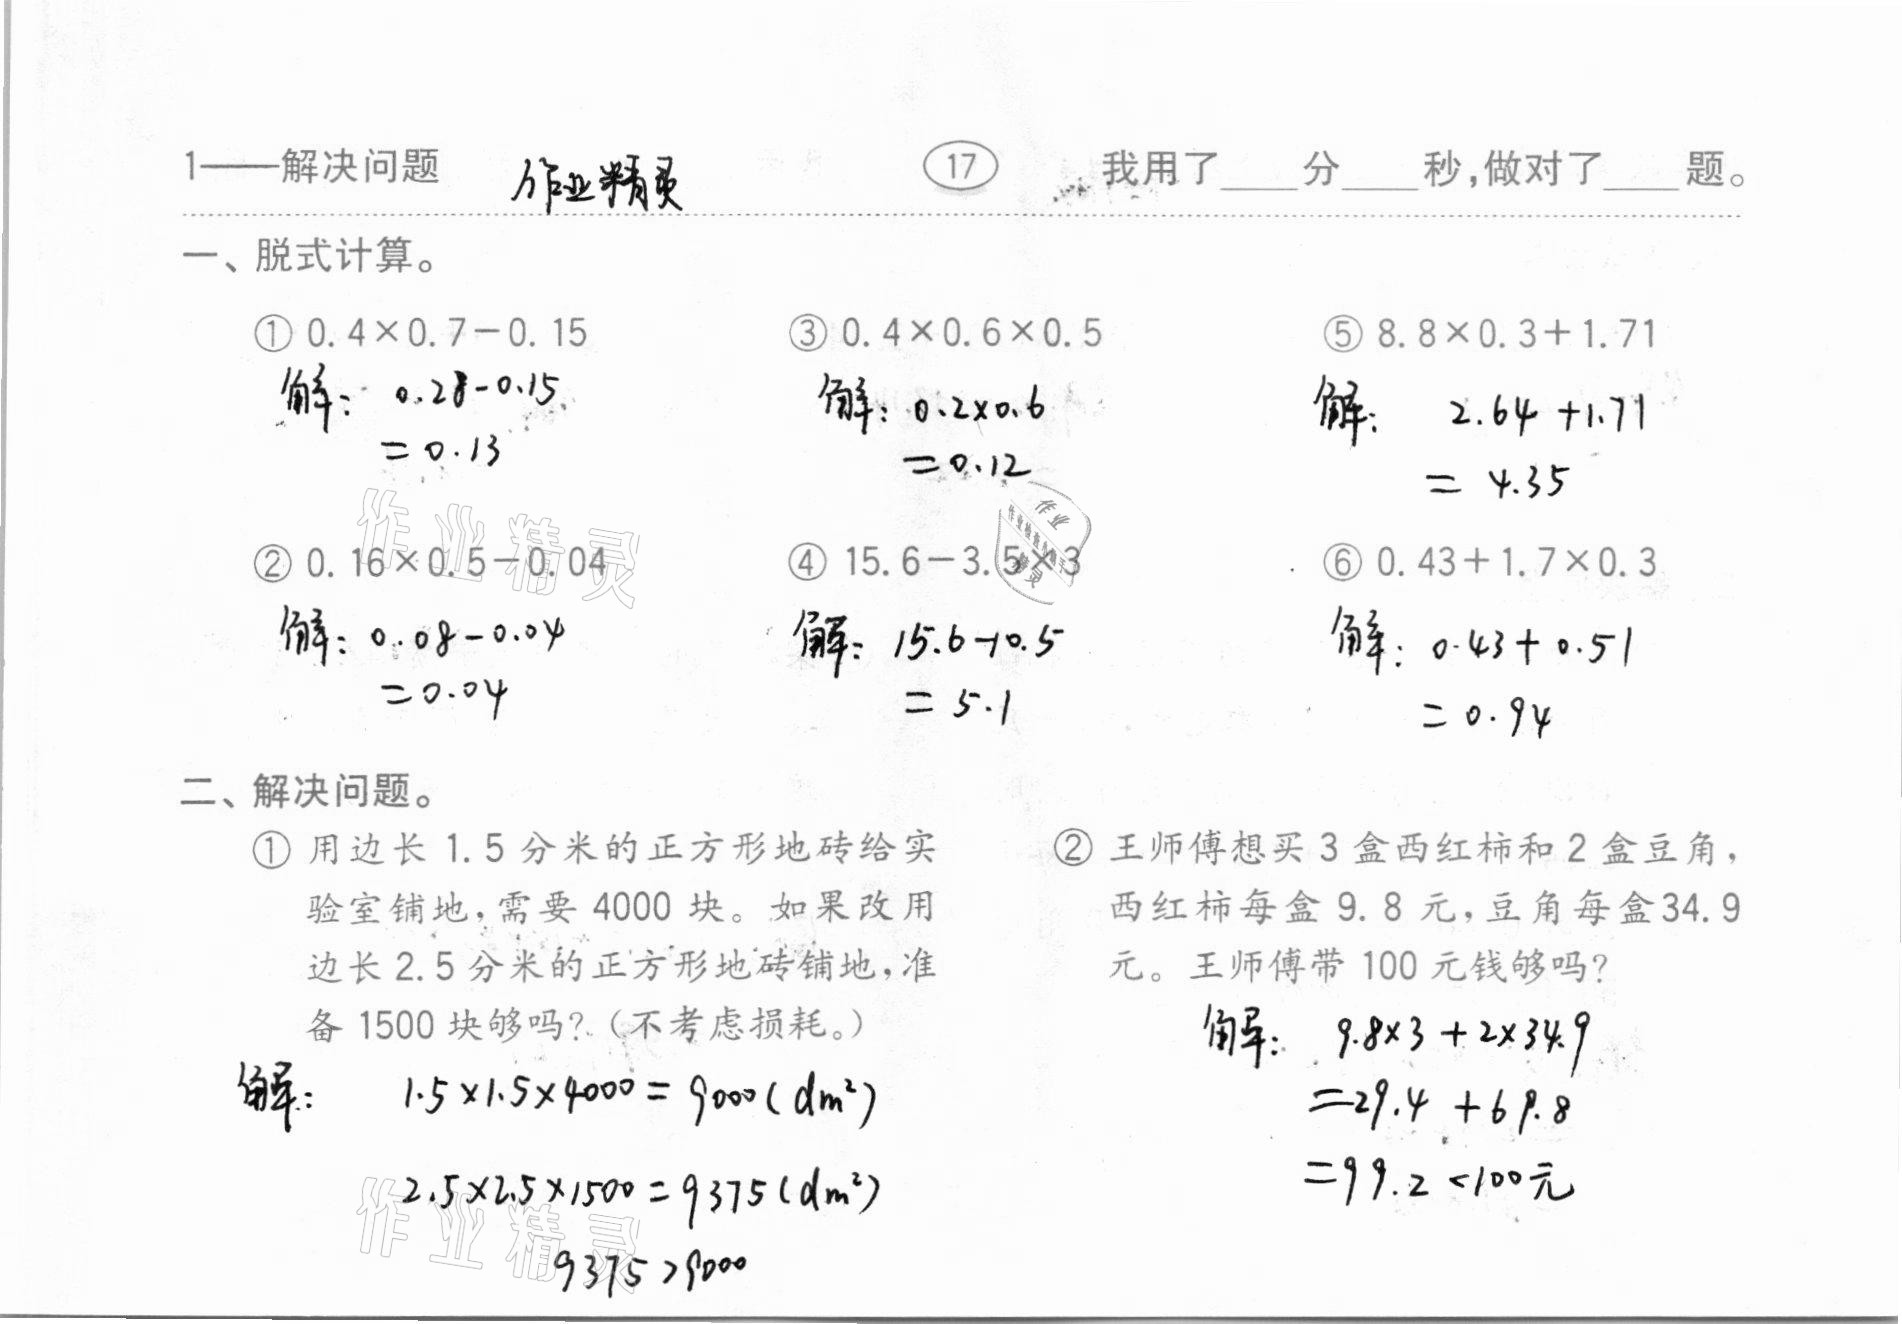 1——解决问题 作业精灵 17 我用了____分____秒,做对了____题。
一、脱式计算。
① 0.4×0.7-0.15
解: 0.28-0.15
=0.13
② 0.16×0.5-0.04
解: 0.08-0.04
=0.04
③ 0.4×0.6×0.5
解: 0.2×0.6
=0.12
④ 15.6-3.5×3
解: 15.6-10.5
=5.1
⑤ 8.8×0.3+1.71
解: 2.64+1.71
=4.35
⑥ 0.43+1.7×0.3
解: 0.43+0.51
=0.94
作业精灵
作业
精灵
二、解决问题。
① 用边长1.5分米的正方形地砖给实
验室铺地,需要4000块。如果改用
边长2.5分米的正方形地砖铺地,准
备1500块够吗?(不考虑损耗。)
解: 1.5×1.5×4000=9000(dm²)
2.5×2.5×1500=9375(dm²)
9375>9000
作业精灵
② 王师傅想买3盒西红柿和2盒豆角,
西红柿每盒9.8元,豆角每盒34.9
元。王师傅带100元钱够吗?
解: 9.8×3+2×34.9
=29.4+69.8
=99.2<100元